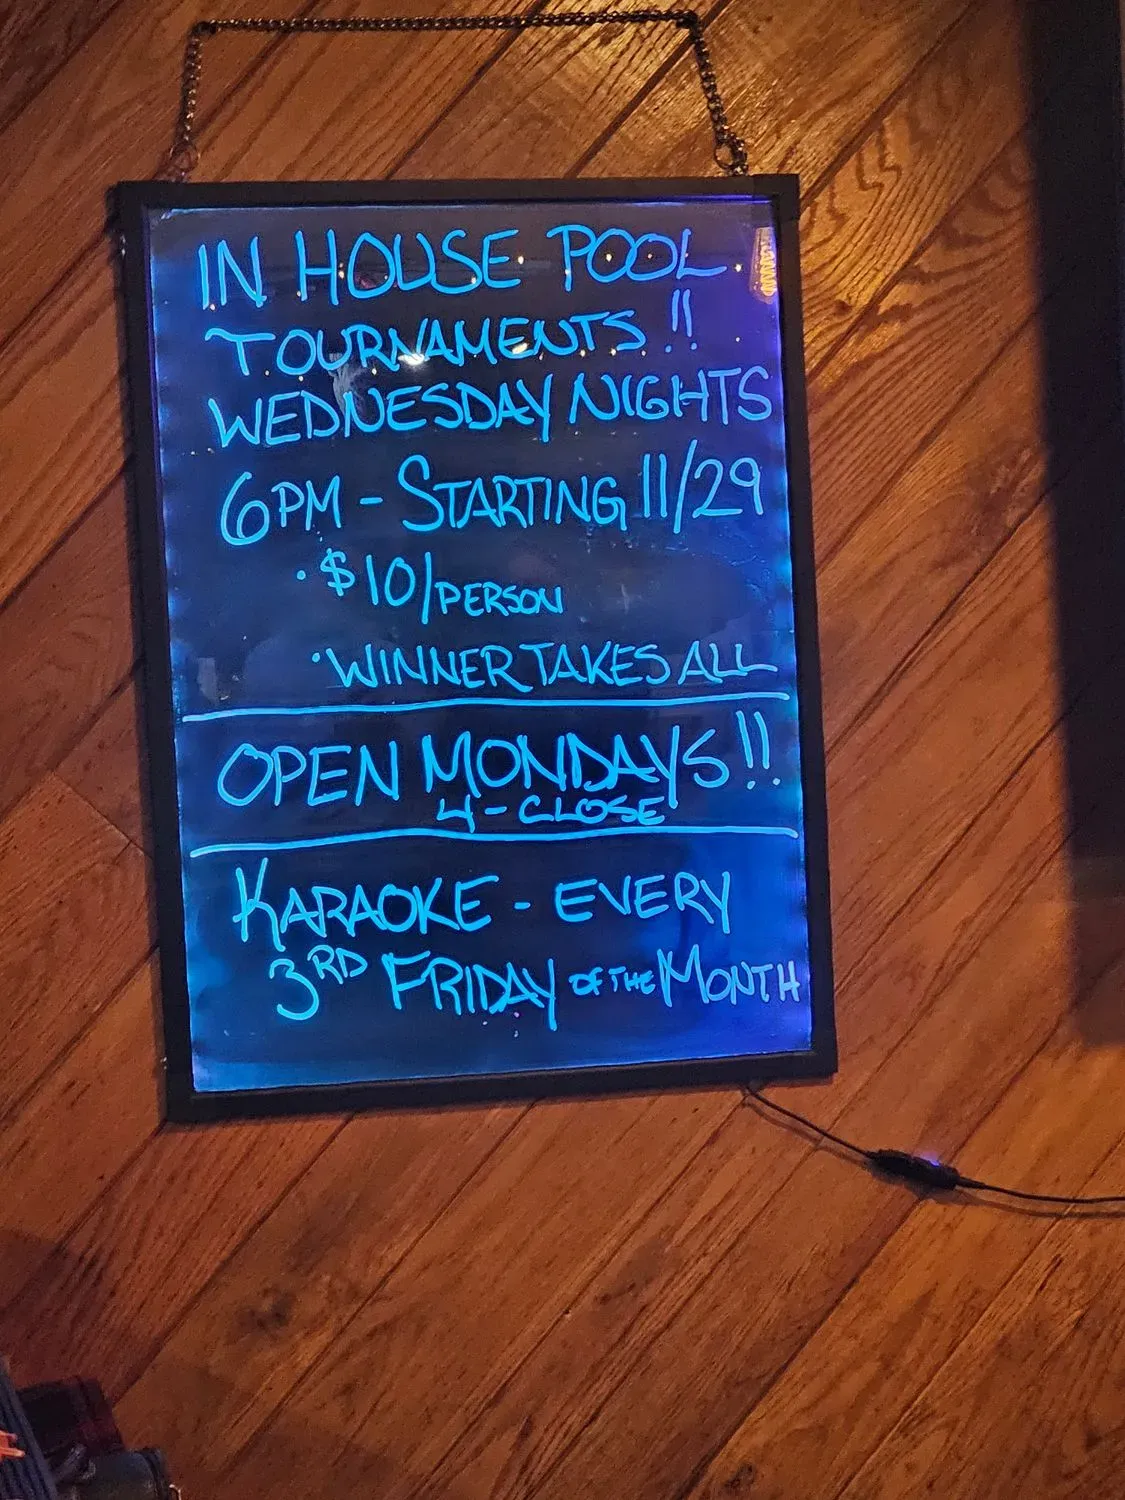 IN HOUSE POOL
TOURNAMENTS!!
WEDNESDAY NIGHTS
6PM - STARTING 11/29
· $10/PERSON
· WINNER TAKES ALL
OPEN MONDAYS!!
4 - CLOSE
KARAOKE - EVERY
3RD FRIDAY OF THE MONTH